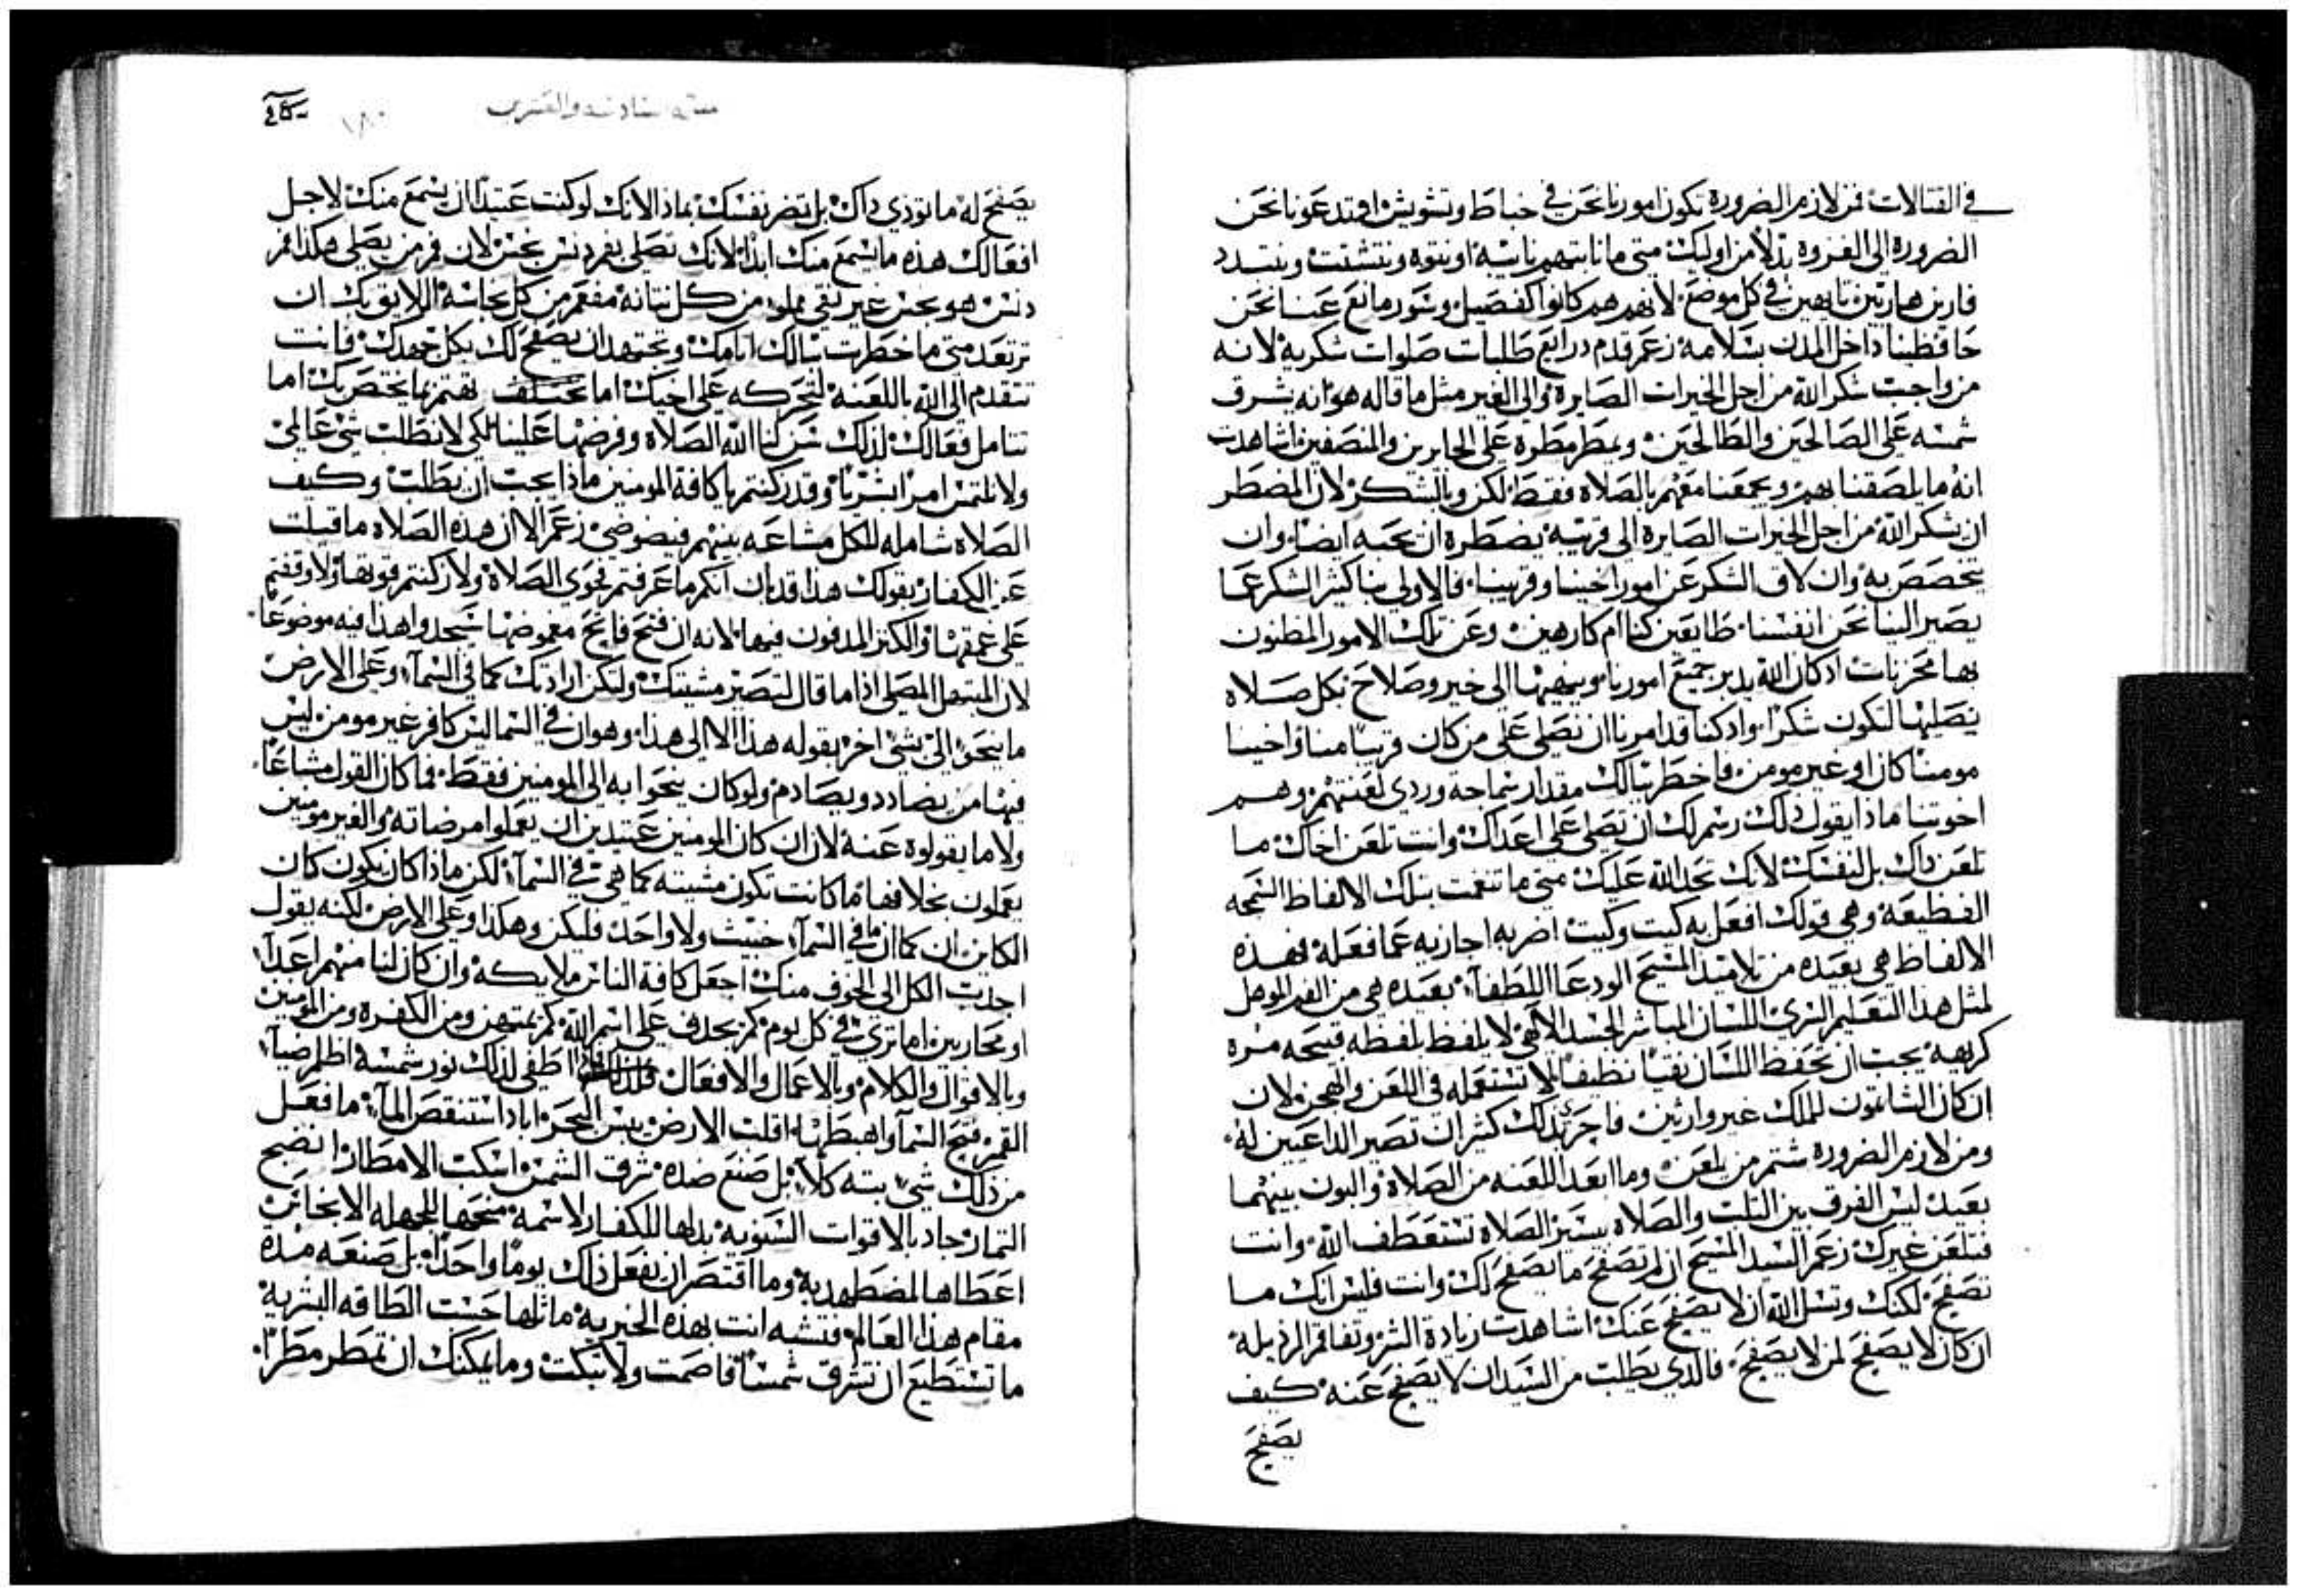 في القتالات فمن لازم الضرورة تكون امورنا نحن في خباط وتشويش او تدعونا نحن
الضرورة الى الغزوه بدلاً من اوليك متى ما نابتهم نايبة او نتوه ونتشتت ونتبدد
فارين هاربين تايهين في كل موضع لانهم هم كانوا كفصيل وسور مانع عنا نحن
حافظينا داخل المدن بسلامة زعم قدم درايع طلبات صلوات شكرية لانه
من واجب شكر الله من اجل الخيرات الصايرة والى الغير مثل ما قاله هو انه يشرف
شمسه على الصالحين والطالحين ويمطر مطره على الجايرين والمنصفين اشاهدت
انه ما يلصقنا بهم ويجمعنا معهم بالصلاة فقط لكن وبالشكر لان المضطر
ان يشكر الله من اجل الخيرات الصايرة الى قريبه يضطره ان يحبه ايضاً وان
يتخصص به وان لاق الشكر عن امور اخينا وقريبنا فالاولى بنا كثير الشكر عما
يصير الينا نحن انفسنا طايعين كنا ام كارهين وعن تلك الامور المظنون
بها محزنات اذ كان الله يدبر جميع امورنا وينهيها الى خير وصلاح بكل صلاه
نصليها لتكون شكراً واذ كنا قد امرنا ان نصلي على من كان قريباً منا واخينا
مومناً كان او غير مومن فاخطر ببالك مقدار سماجة وردي لعنتهم وهم
اخوتنا ماذا يقول ذلك رسم لك ان تصلي على اعداك وانت تلعن اخاك ما
تلعن ذاك بل لنفسك لانك تحد الله عليك متى ما تنغمت بتلك الالفاظ السمجه
الفظيعة وهي قولك افعل به كيت وكيت اضربه اجازيه عما فعله فهذه
الالفاظ هي بعيده من تلاميذ المسيح الودعا اللطفاء بعيده هي من الفم الموهل
لمثل هذا التعليم السري اللسان المباشر الجسد الالاهي لا يلفظ بلفظه قبيحه مره
كريهه يجب ان نحفظ اللسان نقياً نظيفاً لا نستعمله في اللعن والهجن لان
ان كان الشاتمون لملك غير وارثين فاجرىذلك كثير ان تصير الداعين له
ومن لازم الضرورة شتم من يلعن وما ابعد اللعنه من الصلاة والبون بينهما
بعيد ليس الفرق بين الثلب والصلاه يسيز الصلاه تستعطف الله وانت
فتلعن غيرك زعم السيد المسيح ان لم تصفح ما يصفح لك وانت فليس انك ما
تصفح لكنك وتسل الله ان لا يصفح عنك اشاهدت زيادة الشر وتفاقم الرذيله
ان كان لا يصفح لمن لا يصفح فالذي يطلب من السيد ان لا يصفح عنه كيف
يصفح
يصفح له ما توذي ذاك بل تضر نفسك بماذا لانك لو كنت عتيداً ان يسمع منك لاجل
افعالك هذه ما يسمع منك ابداً لانك تصلي بفم دنس نجس لان فم من يصلي هكذا فم
دنس هو نجس غير نقي مملو من كل نتانة مفعم من كل نجاسة اللايق بك ان
ترتعد متى ما خطرت ببالك اثامك وتجتهد ان يصفح لك بكل جهدك فانت
تتقدم الى الله باللعنة لتحركه على اخيك اما تختلف تهتم بما يختص بك اما
تتامل فعالك لذلك شركنا الله الصلاه وفرضها علينا لكي لا نطلب شي عالمي
ولا نلتمس امراً بشرياً وقد ركنتم يا كافة المومنين ماذا يجب ان يطلب وكيف
الصلاة شامله للكل مشاعه بينهم فيضوضي زعم الا ان هذه الصلاه ما قبلت
عن الكفار بقولك هذا قد بان انكم ما عرفتم نحوى الصلاة ولا زكنتم قوتها ولا وقفتم
على عمقها والكنز المدفون فيها لانه ان فتح فاتح مغموضها سيجد وا هذا فيه موضوعاً
لان المبتهل المصلي اذا ما قال لتصير مشيتك ولتكن ارادتك كما في السمآء وعلى الارض
ما ينحو الى شي اخر بقوله هذا الا الى هذا وهو ان في السما ليس كافر غير مومن ليس
فيها من يضادد ويصادم ولو كان ينحوا به الى المومنين فقط فما كان القول مشاعاً
ولا ما يقولوه عنه لان ان كان المومنين عتيدين ان يعملوا مرضاته والغير مومنين
يعملون بخلافها فما كانت تكون مشيته كما هي في السمآء لكن ماذا كان يكون كان
الكاين ان كما ان ما في السمآء خبيث ولا واحد فليكن وهكذا وعلى الارض لكنه يقول
اجذب الكل الى الخوف منك اجعل كافة الناس ملايكه وان كان لنا منهم اعدآء
او محاربين اما ترى في كل يوم كم يجدف على اسم الله كم يمتهن ومن الكفره ومن المومنين
وبالاقوال والكلام وبالاعمال والافعال اطفي لذلك نور شمسه اظلم ضيآء
القمر فتح السمآء واهبطها اقلب الارض يبس البحر اباد استنقص المآء ما فعل
من ذلك شيء بته كلا بل صنع ضده شرق الشمس اسكب الامطار انضج
الثمار جاد بالاقوات السنويه بذلها للكفار لاسمه منحها للجهله الانجاس
اعطاها لمضطهديه وما اقتصر ان يفعل ذلك يوماً واحداً بل صنعه مده
مقام هذا العالم فتشبه انت بهذه الخيريه ماثلها حسب الطاقه البشريه
ما تستطيع ان تشرق شمساً فاصمت ولا تبكت وما يمكنك ان تمطر مطراً